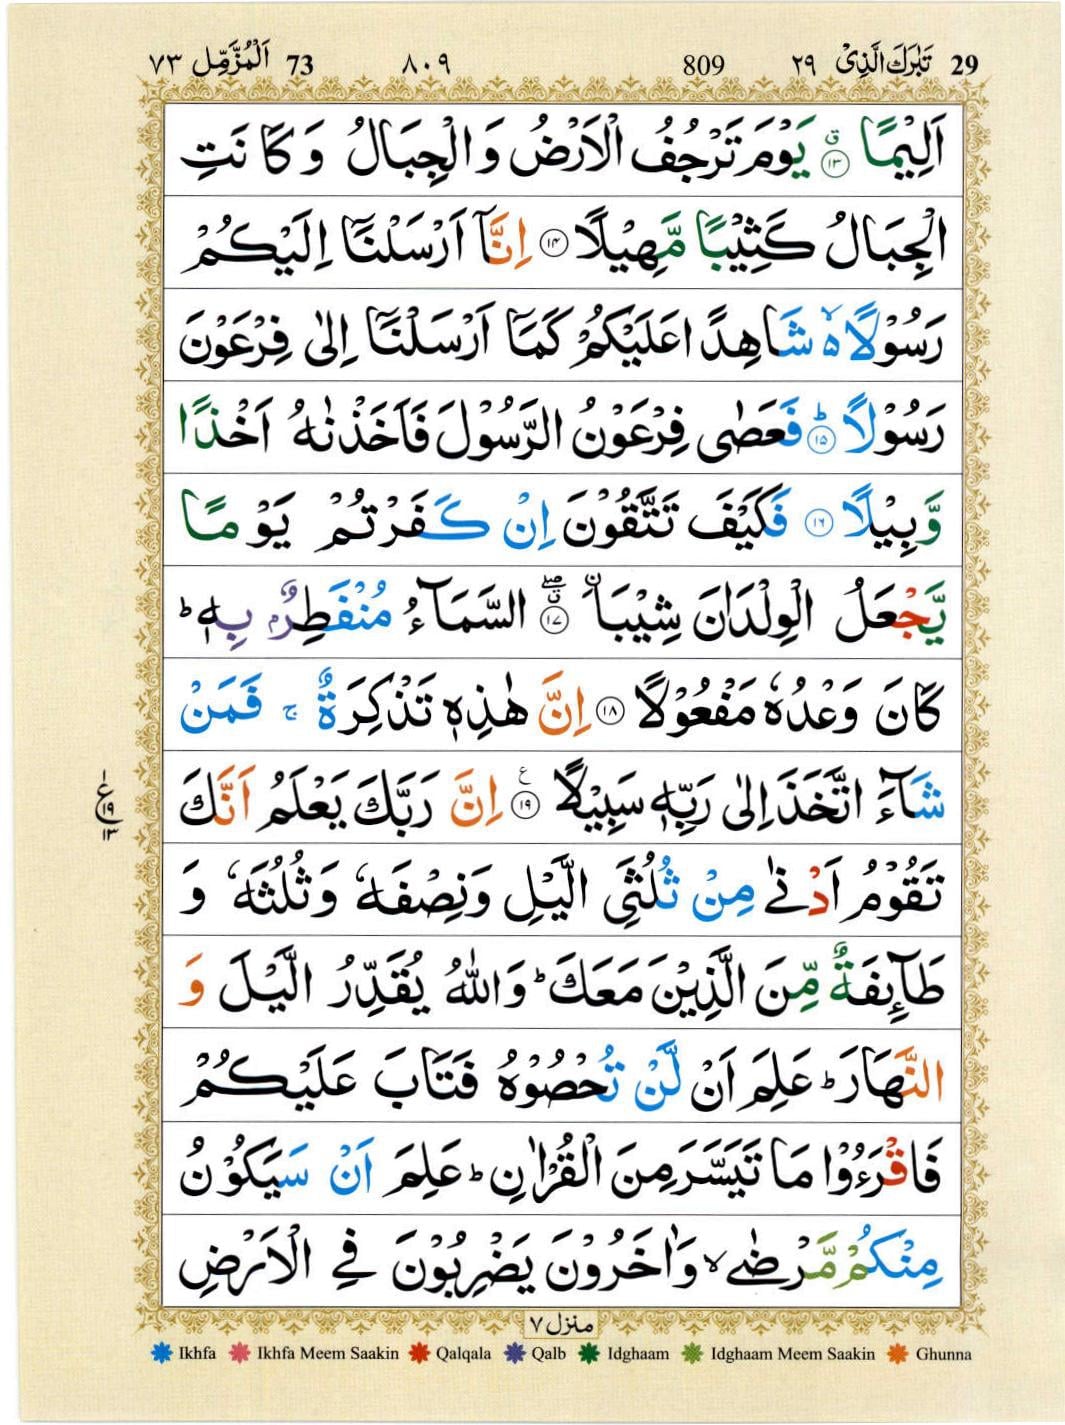 29 تَبٰرَكَ الَّذِیْ ٢٩ 809 ٨٠٩ 73 اَلْمُزَّمِّل ٧٣
اَلِیْمًا ۙق ١٣ یَوْمَ تَرْجُفُ الْاَرْضُ وَ الْجِبَالُ وَ كَانَتِ
الْجِبَالُ كَثِیْبًا مَّهِیْلًا ١٤ اِنَّاۤ اَرْسَلْنَاۤ اِلَیْكُمْ
رَسُوْلًا ۵ۙ شَاهِدًا عَلَیْكُمْ كَمَاۤ اَرْسَلْنَاۤ اِلٰی فِرْعَوْنَ
رَسُوْلًا ؕ ١٥ فَعَصٰی فِرْعَوْنُ الرَّسُوْلَ فَاَخَذْنٰهُ اَخْذًا
وَّبِیْلًا ١٦ فَكَیْفَ تَتَّقُوْنَ اِنْ كَفَرْتُمْ یَوْمًا
یَّجْعَلُ الْوِلْدَانَ شِیْبَاۨ ۖق ١٧ السَّمَآءُ مُنْفَطِرٌۢ بِهٖ ؕ
كَانَ وَعْدُهٗ مَفْعُوْلًا ١٨ اِنَّ هٰذِهٖ تَذْكِرَةٌ ۚ فَمَنْ
شَآءَ اتَّخَذَ اِلٰی رَبِّهٖ سَبِیْلًا ع ١٩ اِنَّ رَبَّكَ یَعْلَمُ اَنَّكَ
ع ١٩ ١٣
تَقُوْمُ اَدْنٰی مِنْ ثُلُثَیِ الَّیْلِ وَنِصْفَهٗ وَثُلُثَهٗ وَ
طَآىِٕفَةٌ مِّنَ الَّذِیْنَ مَعَكَ ؕ وَاللّٰهُ یُقَدِّرُ الَّیْلَ وَ
النَّهَارَ ؕ عَلِمَ اَنْ لَّنْ تُحْصُوْهُ فَتَابَ عَلَیْكُمْ
فَاقْرَءُوْا مَا تَیَسَّرَ مِنَ الْقُرْاٰنِ ؕ عَلِمَ اَنْ سَیَكُوْنُ
مِنْكُمْ مَّرْضٰی ۙ وَاٰخَرُوْنَ یَضْرِبُوْنَ فِی الْاَرْضِ
منزل ٧
Ikhfa Ikhfa Meem Saakin Qalqala Qalb Idghaam Idghaam Meem Saakin Ghunna